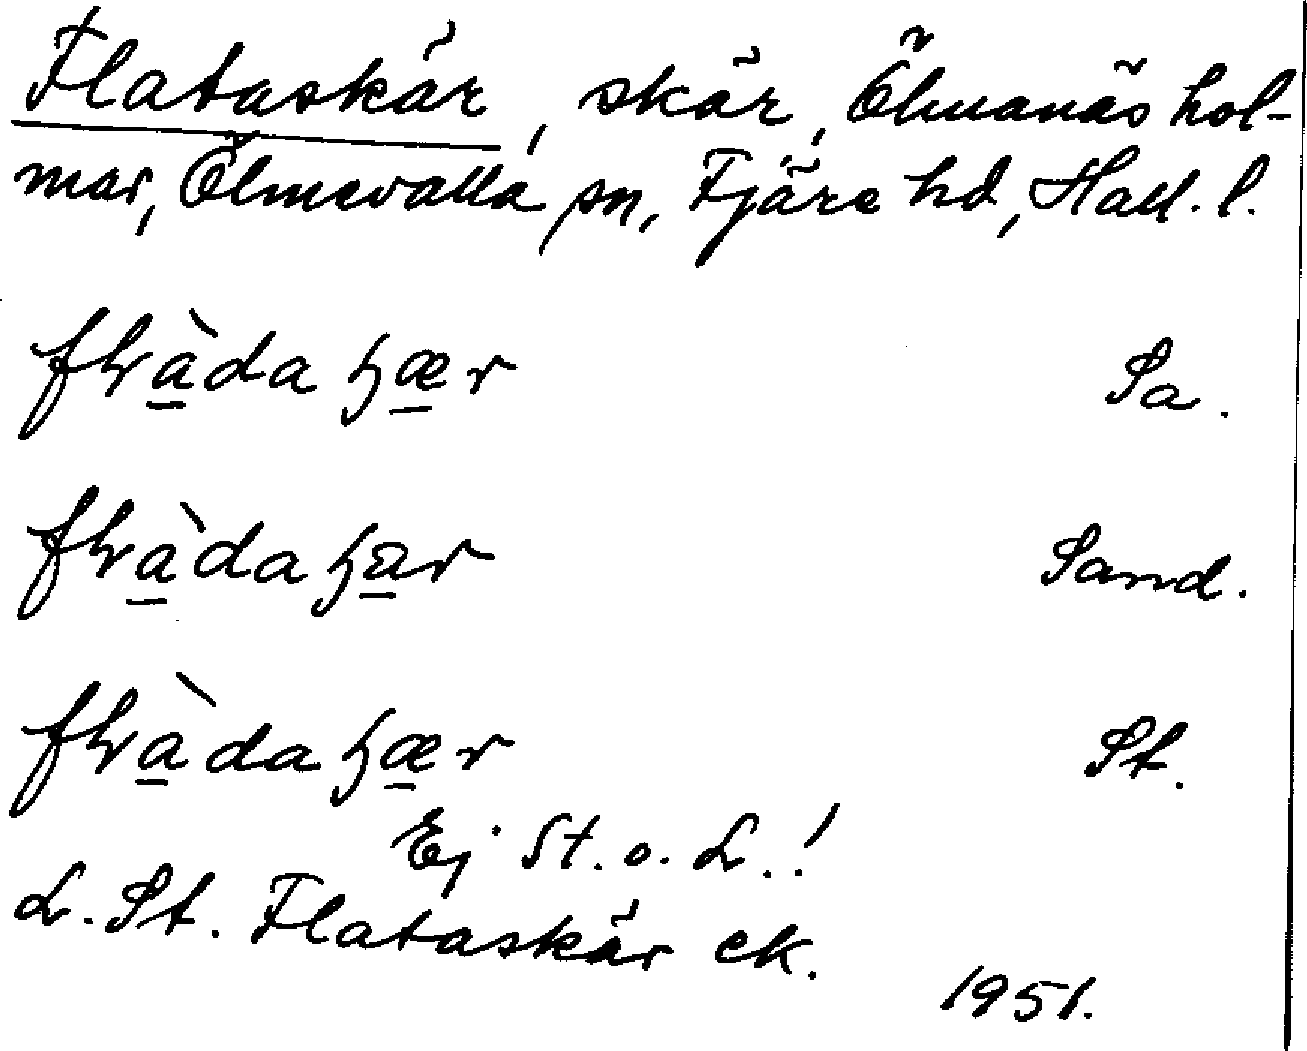 Flataskär, skär, Ölmanäs hol-
mar, Ölmevalla sn, Fjäre hd, Hall. l.
Sa.
Sand.
St.
Ej St. o. L.!
L. St. Flataskär ek.
1951.